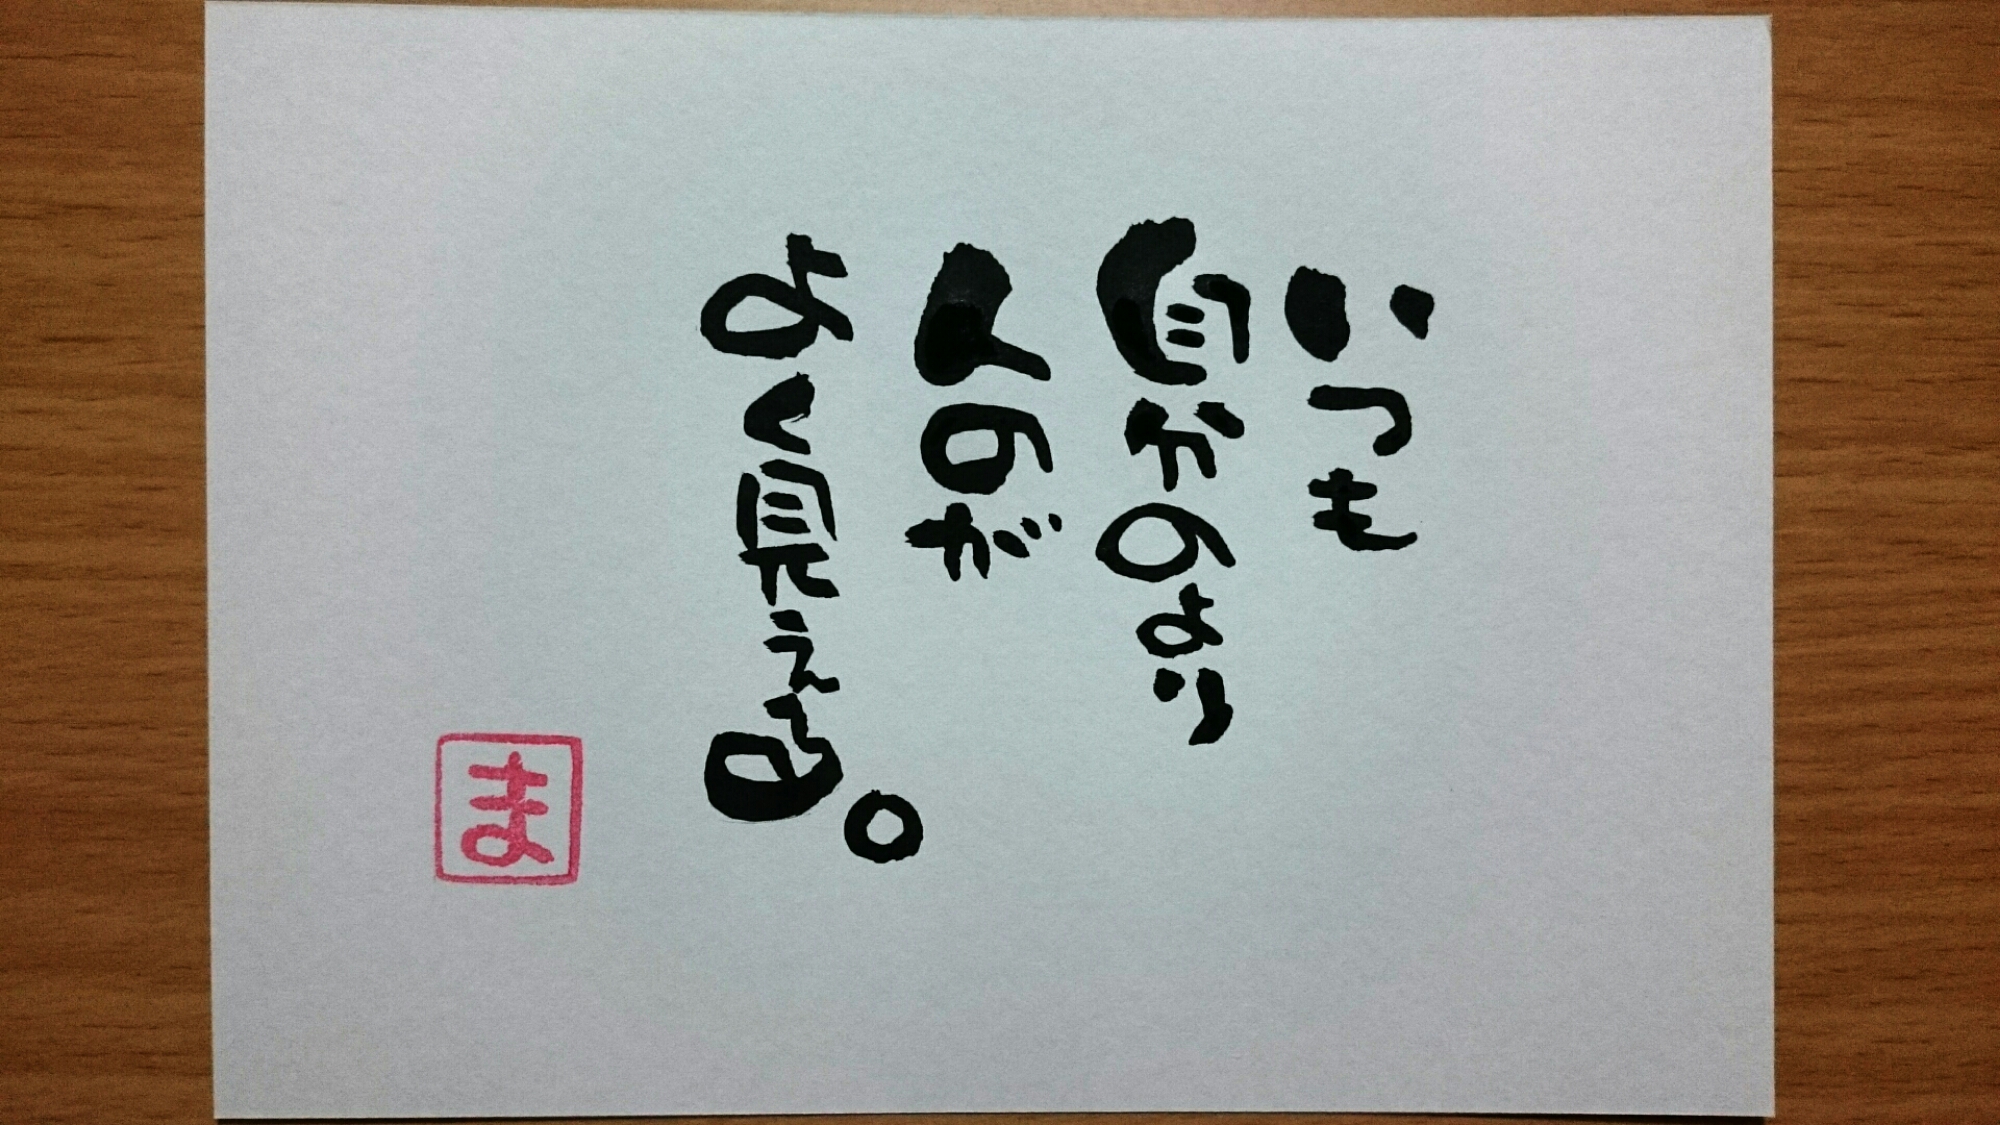 いつも
自分のより
人のが
よく見える。
ま